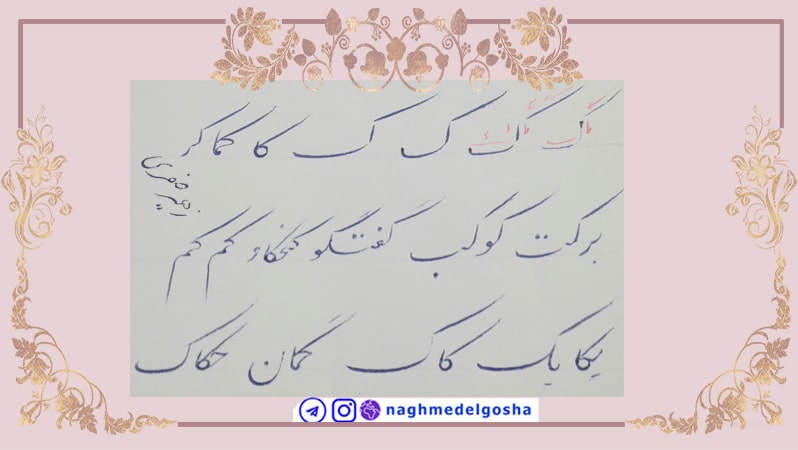 ک ک ک ک کا کما کر
برکت کوکب گفتگو کنجکاو کم کم
یکایک کاک گمان حکاک
naghmedelgosha